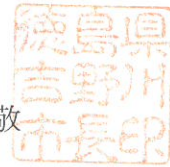 徳島県
吉野川
市長印
敬